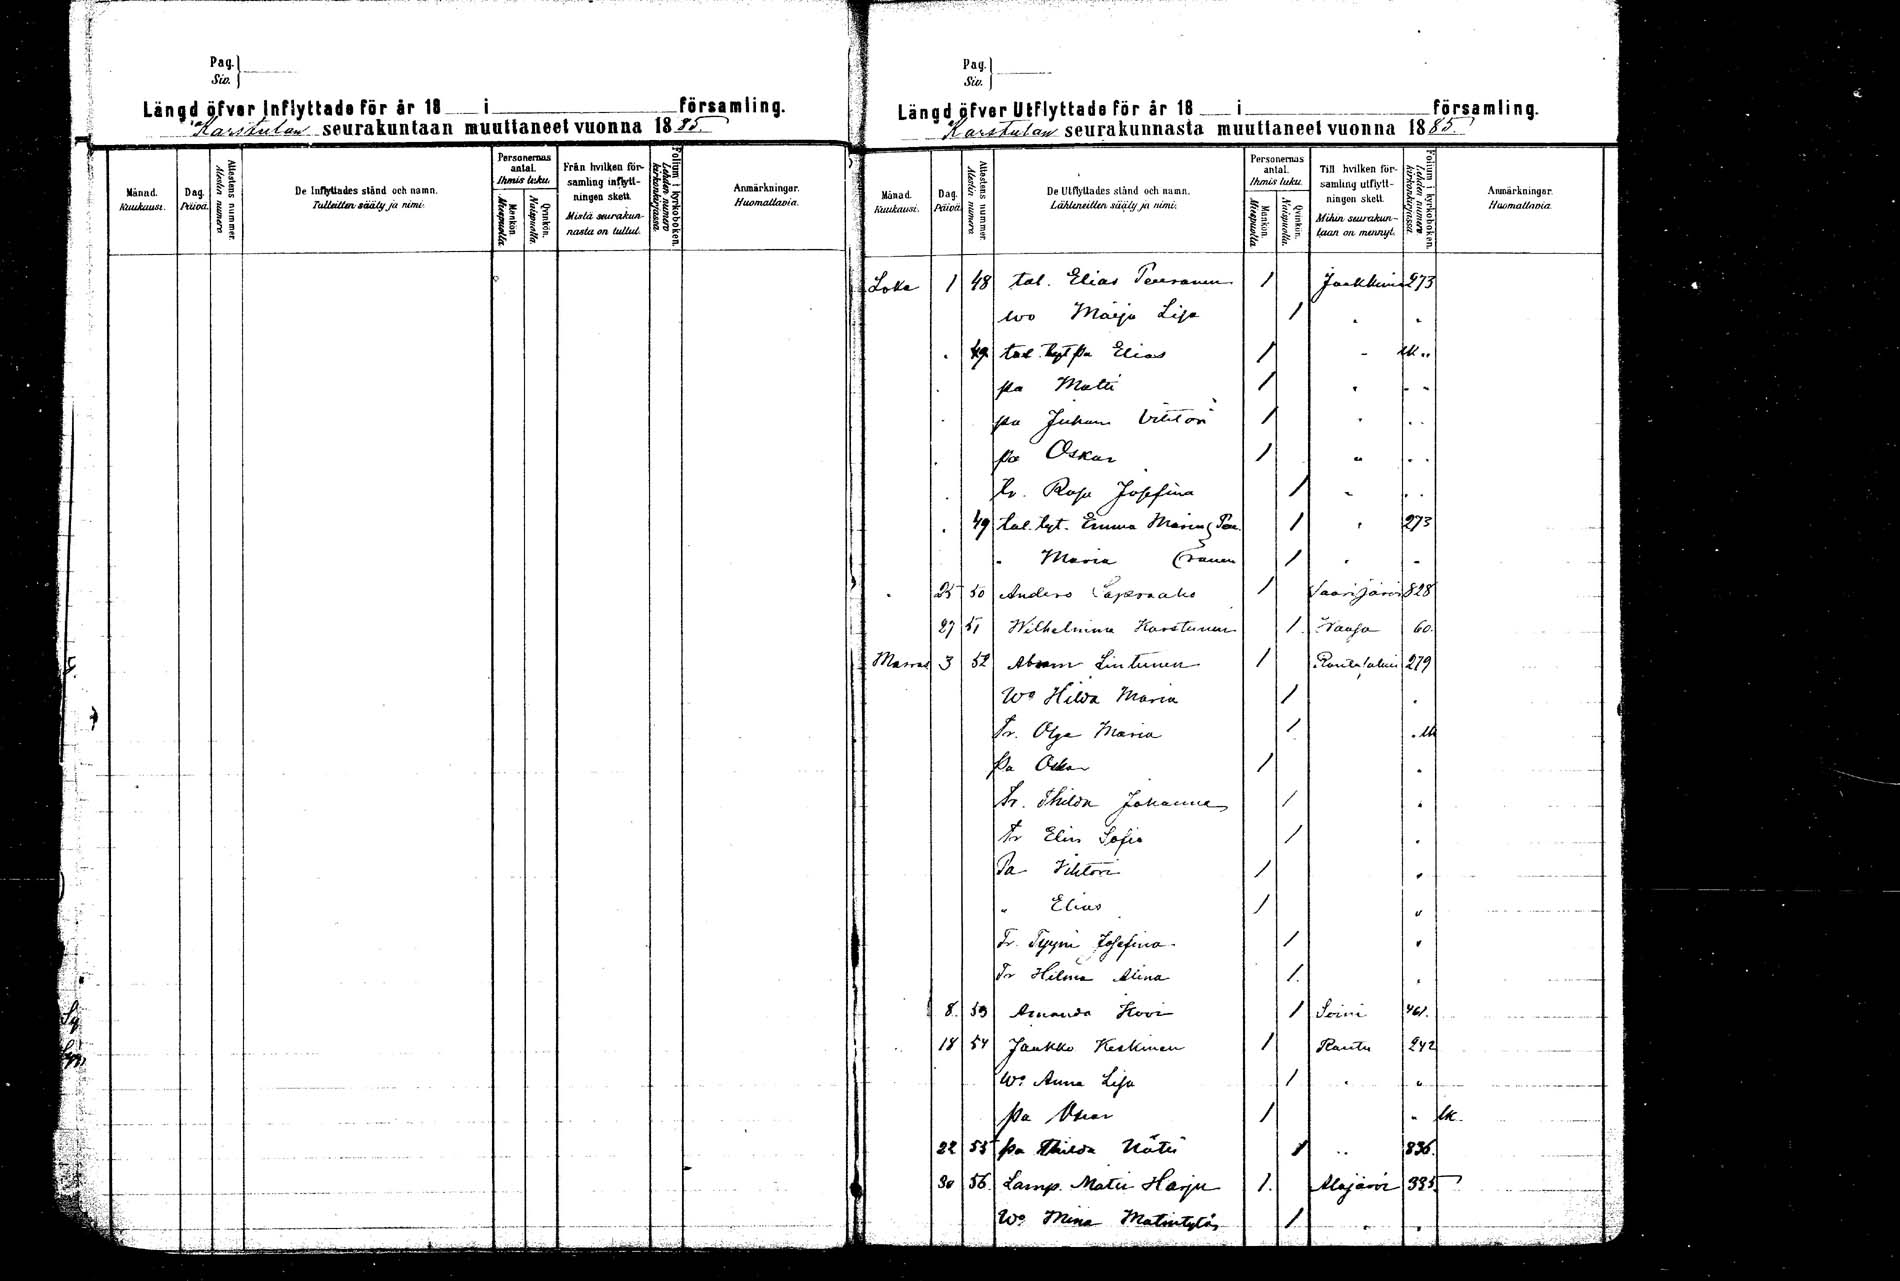 Pag.
Siv.
Längd öfver Inflyttade för år 18 i församling.
Karstulan seurakuntaan muuttaneet vuonna 1885.
Månad. Kuukausi.
Dag. Päivä.
Attestens nummer. Åtestin numero
De Inflyttades stånd och namn.
Tulleitten sääty ja nimi.
Personernas antal. Ihmis luku.
Mankön. Miespuolia
Qvinkön. Naispuolia.
Från hvilken församling inflyttningen skett.
Mistä seurakunnasta on tullut.
Folium i kyrkoboken. Lehden numero kirkonkirjassa
Anmärkningar.
Huomattavia.
Pag.
Siv.
Längd öfver Utflyttade för år 18 i församling.
Karstulan seurakunnasta muuttaneet vuonna 1885.
Månad. Kuukausi.
Dag. Päivä.
Attestens nummer.
De Utflyttades stånd och namn.
Lähteneitten sääty ja nimi.
Personernas antal. Ihmis luku.
Mankön. Miespuolia
Qvinkön. Naispuolia.
Till hvilken församling utflyttningen skett.
Mihin seurakuntaan on mennyt.
Folium i kyrkoboken. Lehden numero kirkonkirjassa.
Anmärkningar.
Huomattavia.
Loka 1 48 tal. Elias 1 273
wo Maija Lisa 1 " "
" 49 Elias 1 " lk "
pa Matti 1 " " "
pa Juhan Vihtori 1 " " "
pa Oskar 1 " " "
tr. Rosa Josefina 1 " " "
" 49 tal. tyt. Emma Maria 1 " 273
" Maria 1 " "
" 25 50 Anders 1 Saarijärvi 828
27 51 Wilhelmina Karstunen 1 Waasa 60.
Marras 3 52 Abram Lintunen 1 Rautalampi 279
Wo Hilda Maria 1 "
Tr. Olga Maria 1 " lk
Pa Oskar 1 "
Tr. Thilda Johanna 1 "
Tr Elin Sofia 1 "
Pa Vihtori 1 "
" Elias 1 "
Tr. Tyyni Josefina 1 "
Tr Hilma Alina 1 "
8. 53 Amanda 1 Soini 461.
18 54 Jaakko Keskinen 1 Rautu 242
Wo Anna Lisa 1 " "
pa Oskar 1 " lk.
22 55 pa Thilda 1 " 836.
30 56. Lamp. Matti Harju 1. Alajärvi 335
Wo Mina Matintytär 1 " "